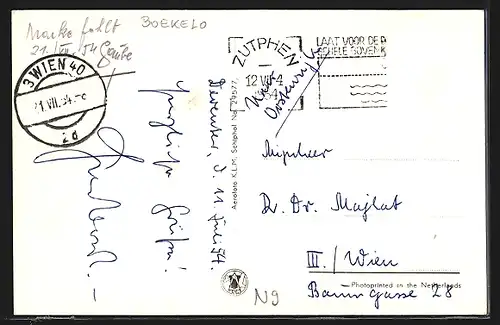 Marke fehlt
21. VII. 54
BOEKELO
3 WIEN 40
21. VII. 54
2d
ZUTPHEN
12 VII 4
54
LAAT VOOR DE P
SCHELE BOVENK
Deventer, d. 11. Juli 54.
Herzliche Grüße!
Aerofoto K.L.M. Schiphol No. 29577.
Mijnheer
Dr. Dr. Majlat
III. / Wien
Photoprinted in the Netherlands
Baumgasse 28
N9